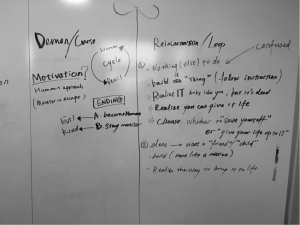 Demon/Curse
Motivation?
Human
Cycle
ENDING!
A. become human
B. stay monster
Reincarnation/Loop
Nothing (else) to do
confused
build "thing" (follow instruction)
Realize IT looks like you, but it's dead
Realize you can give it life
Choose whether to "save yourself"
or "give your life up to it"
alone want a "friend"/"child"
build (more like a mission)
Realize the way to bring it to life